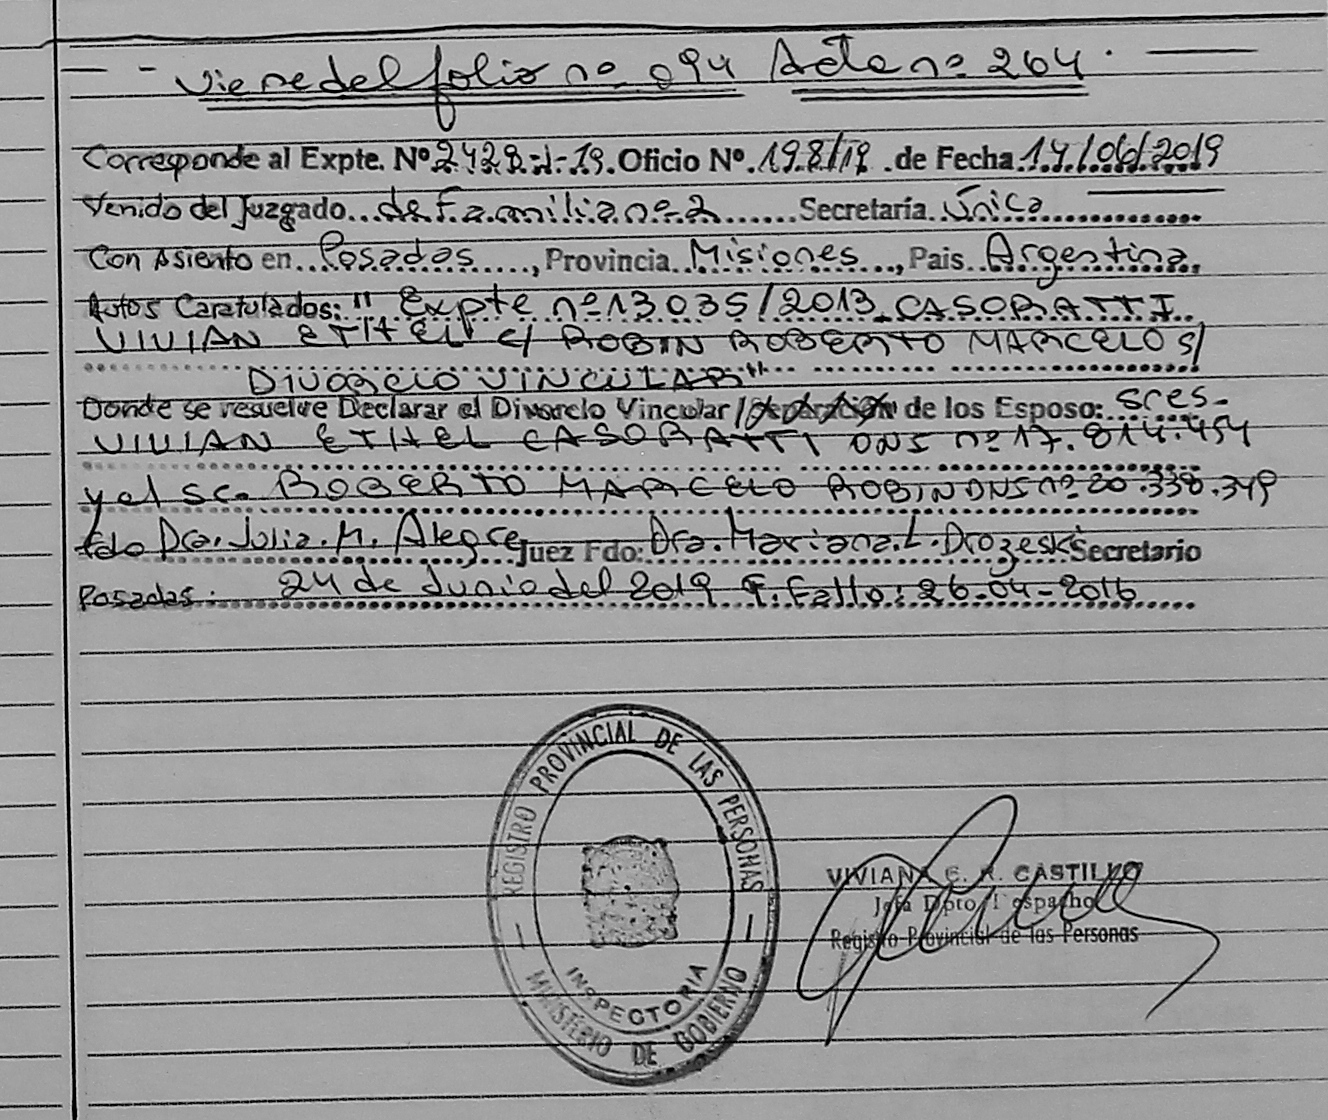 Viene del folio nº 094 Acta nº 264.
Corresponde al Expte. Nº 2428-J-19. Oficio Nº 198/19 de Fecha 14/06/2019
Venido del Juzgado de Familia nº 2 Secretaría Única
Con Asiento en Posadas, Provincia Misiones, Pais Argentina.
Autos Caratulados: "Expte nº 13035/2013 CASORATTI
VIVIAN ETHEL C/ ROBIN ROBERTO MARCELO S/
DIVORCIO VINCULAR"
Donde se resuelve Declarar el Divorcio Vincular / de los Esposo: sres-
VIVIAN ETHEL CASORATTI DNI nº 17.814.454
y el sr. ROBERTO MARCELO ROBIN DNI nº 20.338.349
fdo Dra. Julia. M. Alegre Juez Fdo: Dra. Mariana. L. Drozeski Secretario
Posadas: 24 de Junio del 2019 F. Fallo: 26-04-2016
REGISTRO PROVINCIAL DE LAS PERSONAS
INSPECTORIA
MINISTERIO DE GOBIERNO
VIVIANA C. R. CASTILLO
Jefa Dpto Despacho
Registro Provincial de las Personas